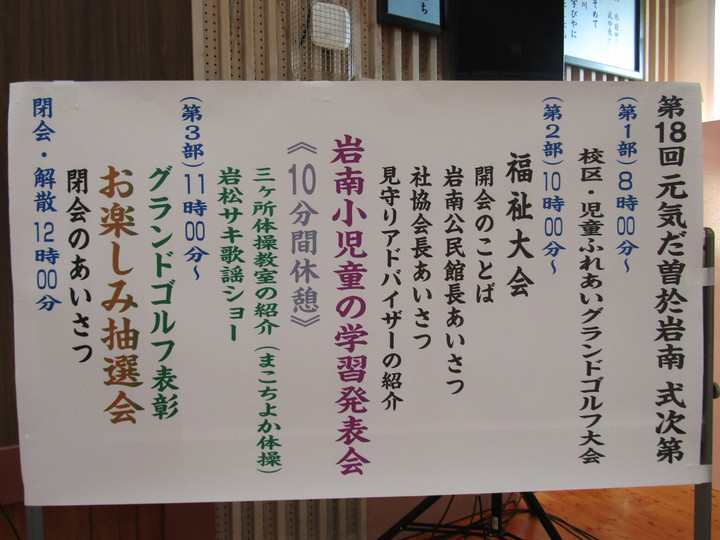 第18回 元気だ曽於岩南 式次第
(第1部) 8時00分～
校区・児童ふれあいグランドゴルフ大会
(第2部) 10時00分～
福祉大会
開会のことば
岩南公民館長あいさつ
社協会長あいさつ
見守りアドバイザーの紹介
岩南小児童の学習発表会
《10分間休憩》
三ヶ所体操教室の紹介(まこちよか体操)
岩松サキ歌謡ショー
(第3部) 11時00分～
グランドゴルフ表彰
お楽しみ抽選会
閉会のあいさつ
閉会・解散 12時00分